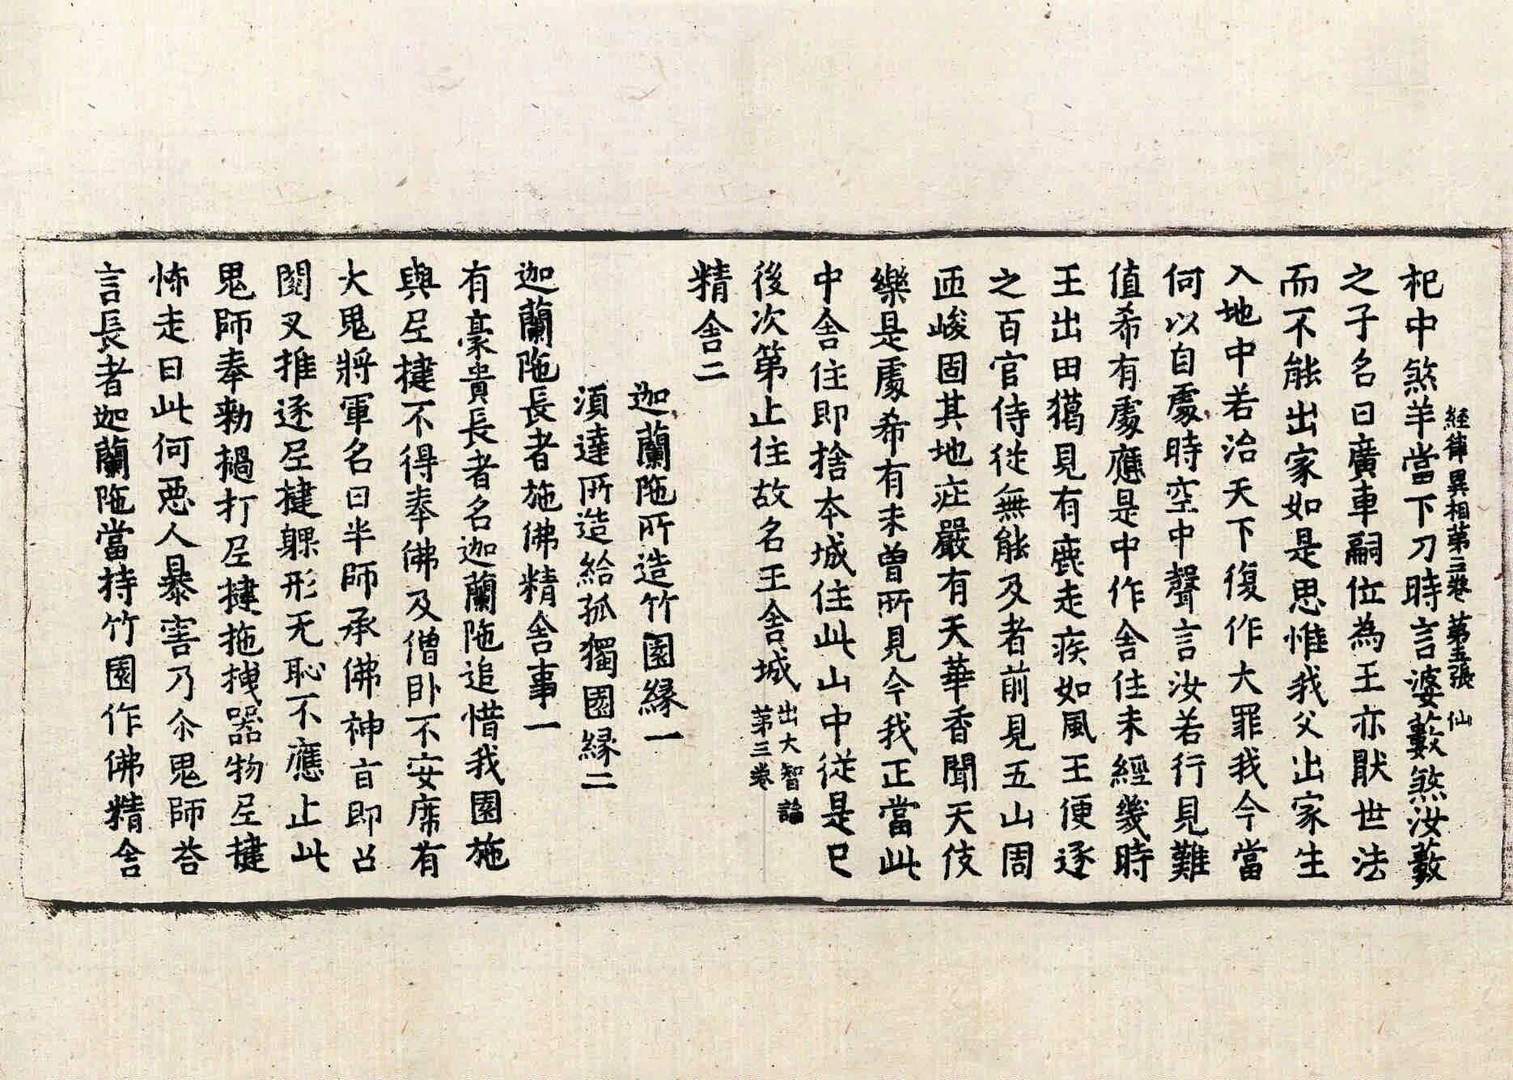 経律異相第三卷 第五張 仙
杞中煞羊當下刀時言婆藪煞汝藪
之子名曰廣車嗣位為王亦猒世法
而不能出家如是思惟我父出家生
入地中若治天下復作大罪我今當
何以自處時空中聲言汝若行見難
值希有處應是中作舍住未經幾時
王出田獦見有鹿走疾如風王便逐
之百官侍從無能及者前見五山周
匝峻固其地庄嚴有天華香聞天伎
樂是處希有未曽所見今我正當此
中舍住即捨本城住此山中從是已
後次第止住故名王舍城 出大智論第三卷
精舍二
迦蘭陁所造竹園緣一
湏達所造給孤獨園緣二
迦蘭陁長者施佛精舍事一
有豪貴長者名迦蘭陁追惜我園施
與尼揵不得奉佛及僧卧不安席有
大鬼將軍名曰半師承佛神旨即召
閱叉推逐尼揵躶形无恥不應止此
鬼師奉勑撾打尼揵拖拽器物尼揵
怖走曰此何惡人暴害乃尒鬼師荅
言長者迦蘭陁當持竹園作佛精舍